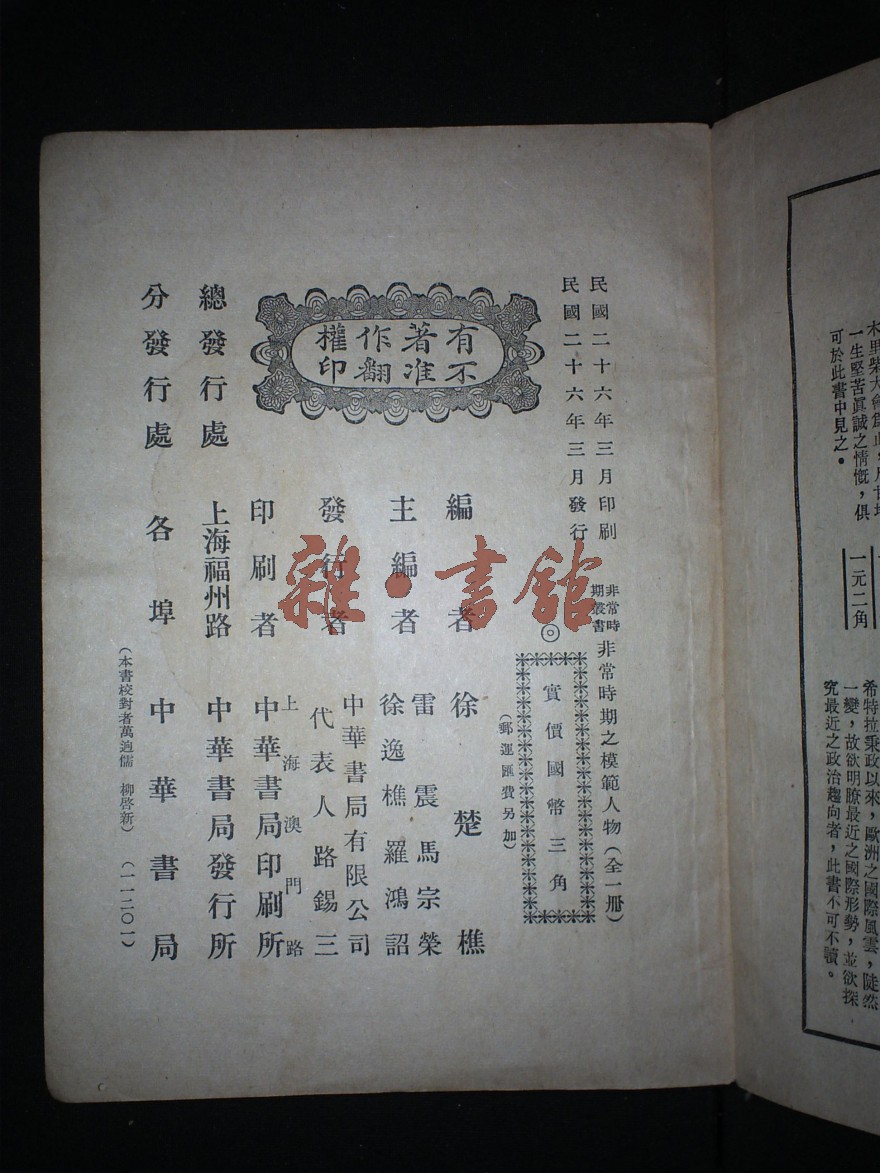 民國二十六年三月印刷
民國二十六年三月發行
非常時
期叢書
非常時期之模範人物(全一冊)
◎
實價國幣三角
(郵運匯費另加)
有著作權
不准翻印
編者 徐楚樵
主編者 雷震 馬宗榮
徐逸樵 羅鴻詔
發行者 中華書局有限公司
代表人 路錫三
印刷者 上海澳門路
中華書局印刷所
總發行處 上海福州路 中華書局發行所
分發行處 各埠 中華書局
(本書校對者萬迥儒 柳啓新) (一一二〇一)
雜·書館
一生堅苦眞誠之情慨,俱
可於此書中見之。
一元二角
希特拉秉政以來,歐洲之國際風雲,陡然
一變,故欲明瞭最近之國際形勢,並欲探
究最近之政治趨向者,此書不可不讀。